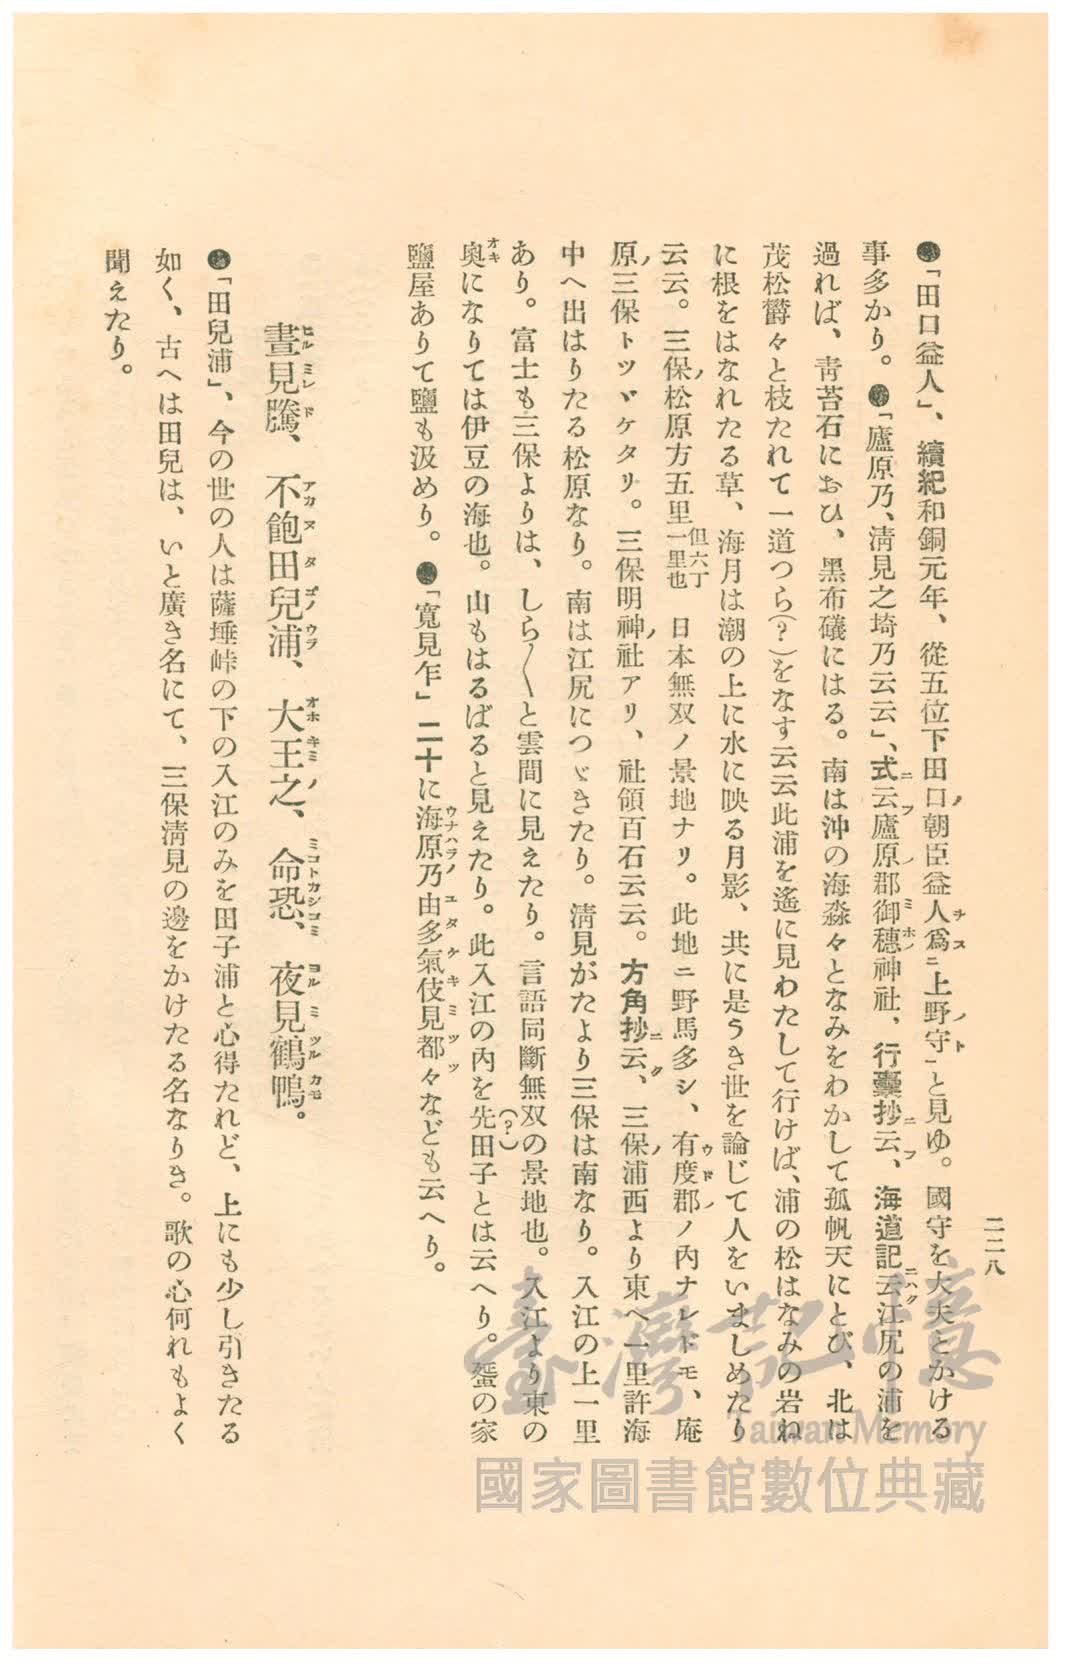 二二八
●「田口益人」、續紀和銅元年、從五位下田口ノ朝臣益人爲ニ上野守ト一と見ゆ。國守を大夫とかける
事多かり。●「廬原乃、淸見之埼乃云云」、式ニ云フ廬原ノ郡御穗ノ神社、行囊抄ニ云フ、海道記ニ云ハク江尻の浦を
過れば、靑苔石におひ、黑布礒にはる。南は沖の海淼々となみをわかして孤帆天にとび、北は
茂松欝々と枝たれて一道つら(?)をなす云云此浦を遙に見わたして行けば、浦の松はなみの岩ね
に根をはなれたる草、海月は潮の上に水に映る月影、共に是うき世を論じて人をいましめたり
云云。三保ノ松原方五里但六丁一里也 日本無双ノ景地ナリ。此地ニ野馬多シ、有度郡ノ內ナレドモ、庵
原ノ三保トツヾケタリ。三保明神ノ社アリ、社領百石云云。方角抄ニ云ク、三保ノ浦西より東へ一里許海
中へ出はりたる松原なり。南は江尻につゞきたり。淸見がたより三保は南なり。入江の上一里
あり。富士も三保よりは、しら〳〵と雲間に見えたり。言語同斷無双の景地也。入江より東の
奧になりては伊豆の海也。山もはるばると見えたり。此入江の內を先(?)田子とは云へり。蜑の家
鹽屋ありて鹽も汲めり。●「寬見乍」二十に海原乃由多氣伎見都々なども云へり。
晝見騰、不飽田兒浦、大王之、命恐、夜見鶴鴨。
●「田兒浦」、今の世の人は薩埵峠の下の入江のみを田子浦と心得たれど、上にも少し引きたる
如く、古へは田兒は、いと廣き名にて、三保淸見の邊をかけたる名なりき。歌の心何れもよく
聞えたり。
臺灣記憶
Taiwan Memory
國家圖書館數位典藏